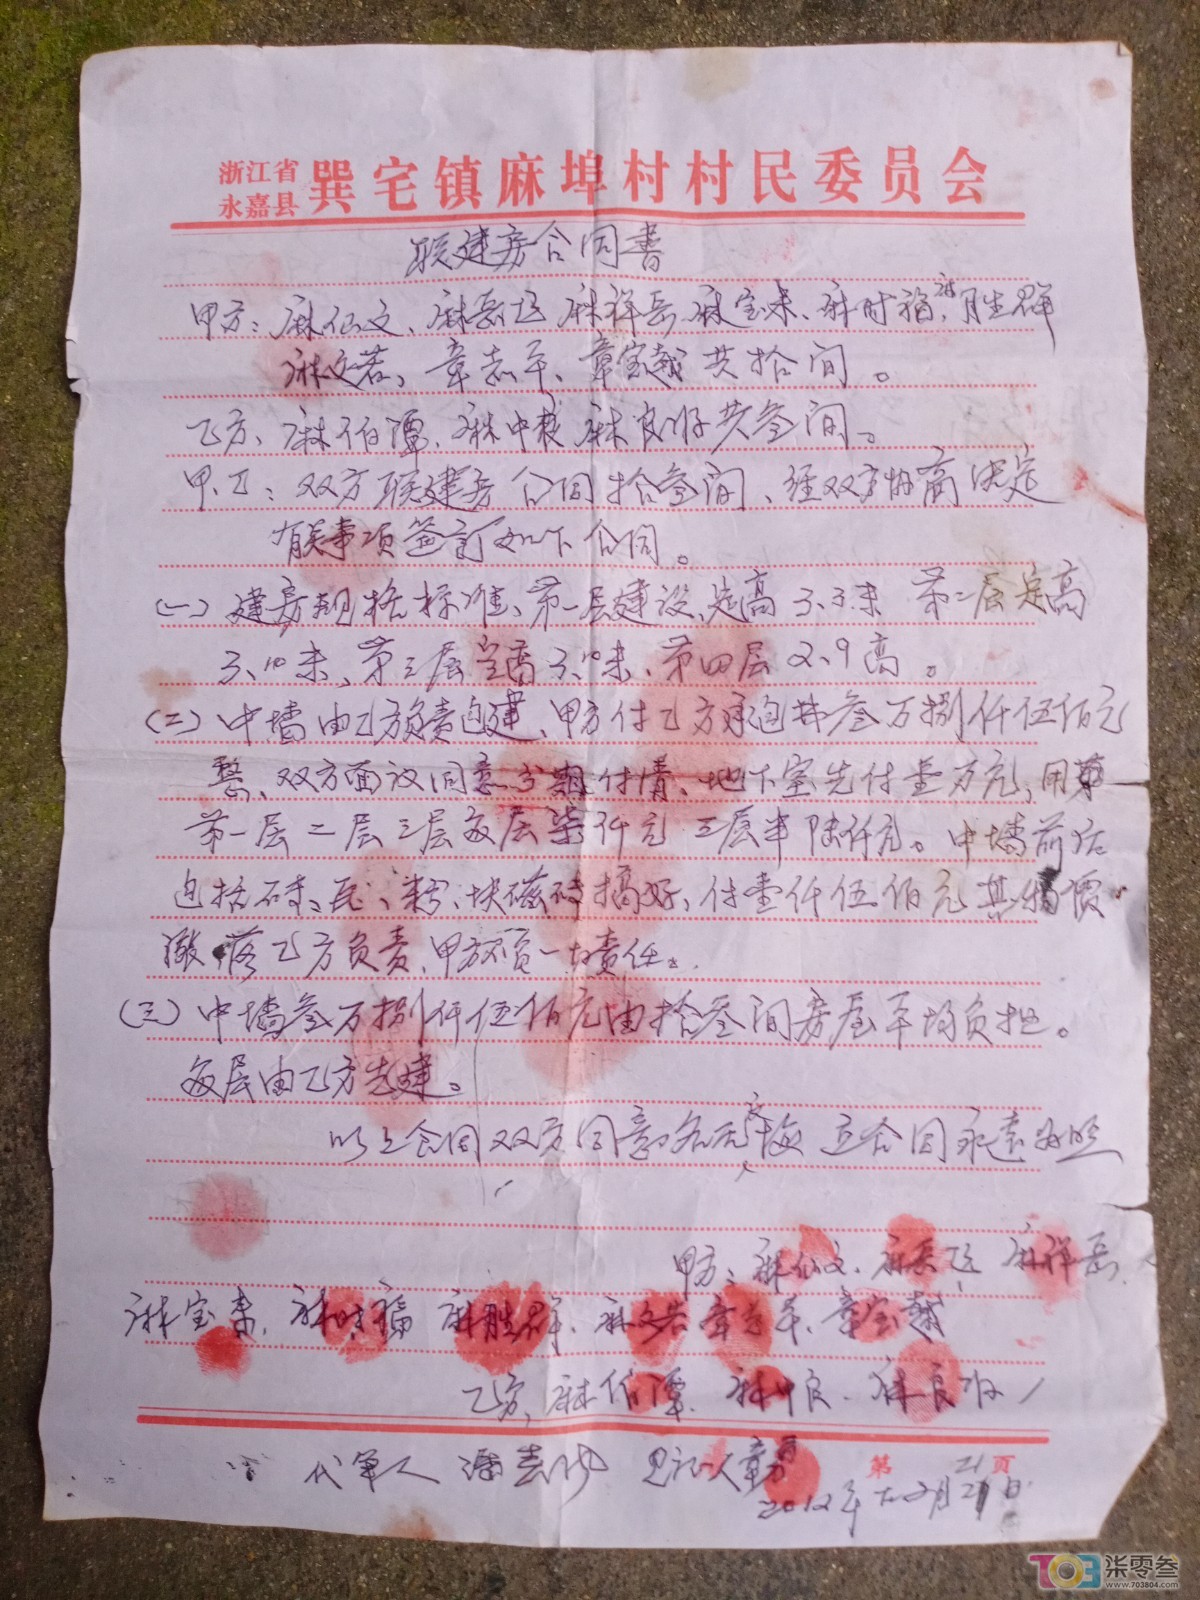 浙江省
永嘉县 巽宅镇麻埠村村民委员会
联建房合同书
甲方：麻仙文、麻岳巧 麻祥岳、麻宝来、麻时福、麻胜群
麻文若、章志平、章宝越 共拾间。
乙方、麻伯潭、麻中良 麻良好共叁间。
甲、乙：双方联建房合同拾叁间、经双方协商决定
有关事项签订如下合同。
(一)建房规格标准、第一层建设、定高3.3米 第二层定高
3.10米、第三层定高3.10米、第四层2.9高。
(二)中墙由乙方负责包建、甲方付乙方承包共叁万捌仟伍佰元
整、双方面议同意分期付情、地下室先付壹万元，用
第一层二层三层每层柒仟元 三层半陆仟元。中墙前后
包括砖、瓦、粉、块磁砖搞好、付壹仟伍佰元 其物價
涨落乙方负责、甲方不负一切责任。
(三)中墙叁万捌仟伍佰元由拾叁间房屋平均负担。
每层由乙方先建。
以上合同双方同意约无反悔 立合同永远为照
甲方：麻仙文、麻岳巧 麻祥岳、
麻宝来、麻时福 麻胜群、麻文若 章志平、章宝越
乙方、麻伯潭、麻中良、麻良好
代笔人 潘 见证人章
第21页
2012年 月21日
703 柒零叁
www.703804.com